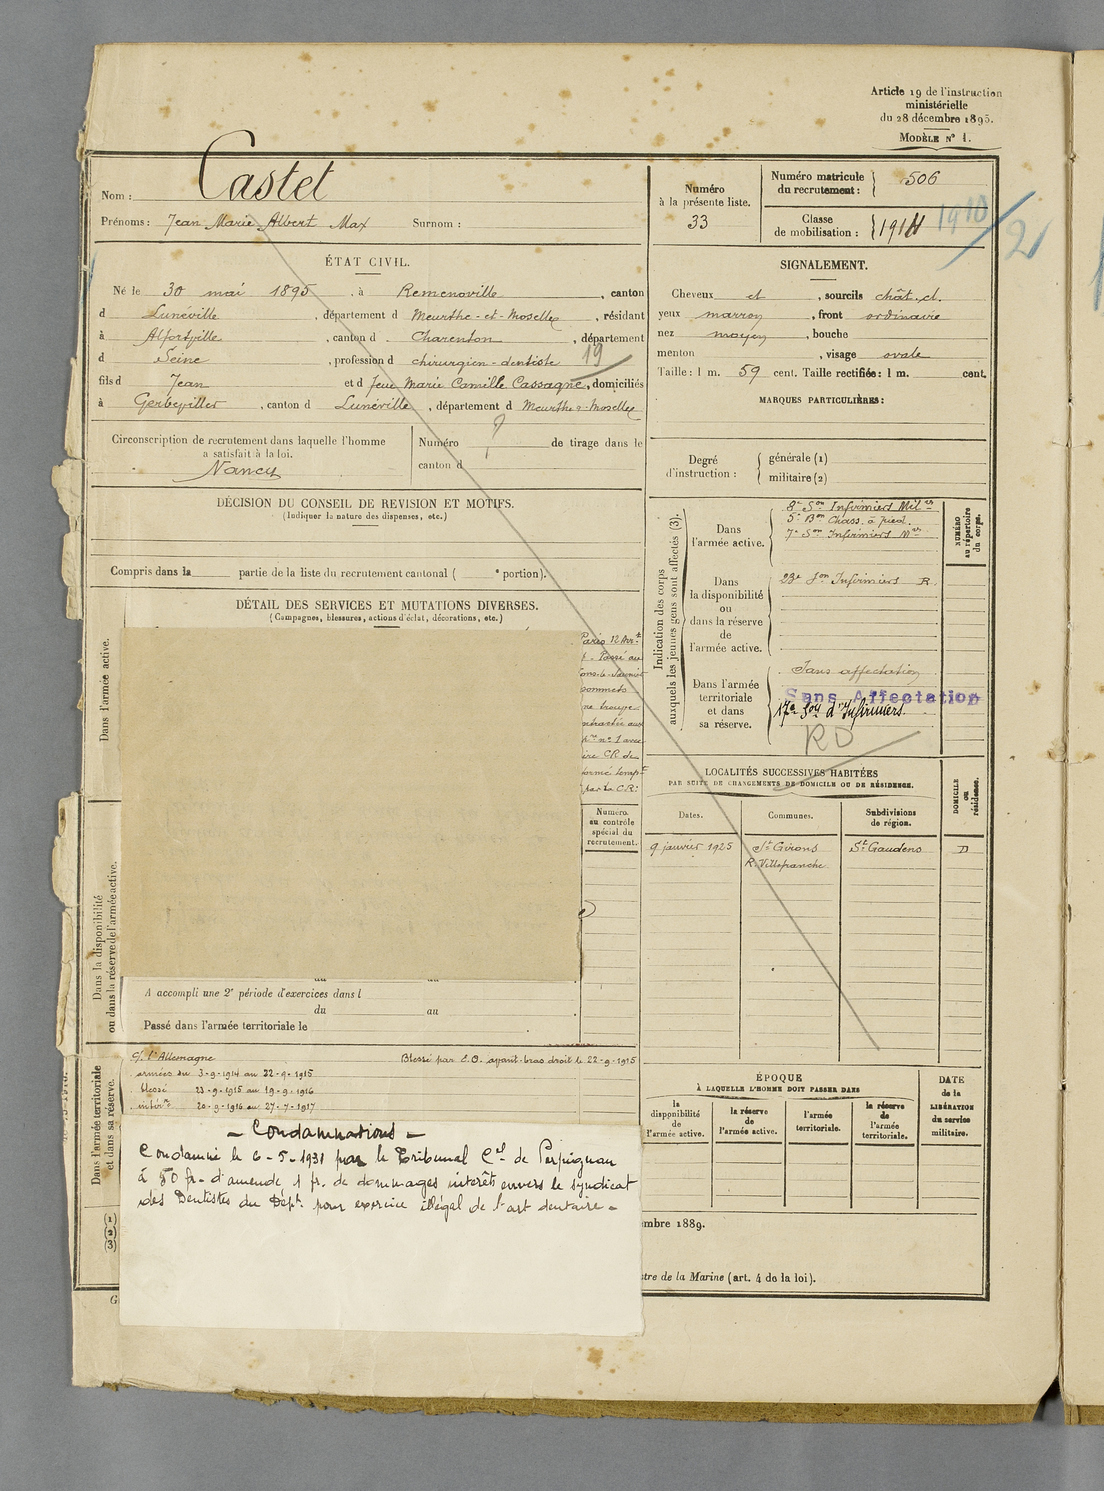 Article 19 de l'instruction
ministérielle
du 28 décembre 1895.
MODÈLE N° 1.
Nom : Castet
Prénoms : Jean Marie Albert Max Surnom :
Numéro
à la présente liste.
33
Numéro matricule
du recrutement : 506
Classe
de mobilisation : 191
1910
2
ÉTAT CIVIL.
Né le 30 mai 1895, à Remenoville, canton
d Lunéville, département d Meurthe-et-Moselle, résidant
à Alfortville, canton d Charenton, département
d Seine, profession d chirurgien-dentiste 19
fils d Jean et d feue Marie Camille Cassagne, domiciliés
à Gerbeviller, canton d Lunéville, département d Meurthe-&-Moselle
SIGNALEMENT.
Cheveux et, sourcils chât. cl.
yeux marron, front ordinaire
nez moyen, bouche
menton, visage ovale
Taille : 1 m. 59 cent. Taille rectifiée : 1 m. cent.
MARQUES PARTICULIÈRES :
Circonscription de recrutement dans laquelle l'homme
a satisfait à la loi.
Nancy
Numéro ? de tirage dans le
canton d
Degré
d'instruction :
générale (1)
militaire (2)
DÉCISION DU CONSEIL DE REVISION ET MOTIFS.
(Indiquer la nature des dispenses, etc.)
Compris dans la partie de la liste du recrutement cantonal ( e portion).
DÉTAIL DES SERVICES ET MUTATIONS DIVERSES.
(Campagnes, blessures, actions d'éclat, décorations, etc.)
Dans l'armée active.
Paris 12 Arrt
Passé au
ne troupe
n° 1 avec
CR de
formé tempre
par la C.R.
Indication des corps
auxquels les jeunes gens sont affectés (3).
Dans
l'armée active.
8e Son Infirmiers Milres
5e Bon Chass. à pied.
7e Son Infirmiers Mres
Dans
la disponibilité
ou
dans la réserve
de
l'armée active.
23e Son Infirmiers R
Dans l'armée
territoriale
et dans
sa réserve.
Sans affectation
Sans Affectation
17e Son d'Infirmiers
RD
NUMÉRO
au répertoire
du corps.
Numéro
au contrôle
spécial du
recrutement.
LOCALITÉS SUCCESSIVES HABITÉES
PAR SUITE DE CHANGEMENTS DE DOMICILE OU DE RÉSIDENCE.
DOMICILE
ou
résidence.
Dates.
Communes.
Subdivisions
de région.
9 janvier 1925 St Girons St Gaudens D
R. Villefranche
Dans la disponibilité
ou dans la réserve de l'armée active.
du au
A accompli une 2e période d'exercices dans l
du au
Passé dans l'armée territoriale le
Dans l'armée territoriale
et dans sa réserve.
C/ l'Allemagne Blessé par E.O. avant-bras droit le 22-9-1915
armées du 3-9-1914 au 22-9-1915
blessé 23-9-1915 au 19-9-1916
intérr 20-9-1916 au 27-7-1917
- Condamnations -
Condamné le 6-5-1931 par le Tribunal Cel de Perpignan
à 50 fr. d'amende 1 fr. de dommages intérêts envers le syndicat
des Dentistes du Dépt. pour exercice illégal de l'art dentaire -
ÉPOQUE
À LAQUELLE L'HOMME DOIT PASSER DANS
la
disponibilité
de
l'armée active.
la réserve
de
l'armée active.
l'armée
territoriale.
la réserve
de
l'armée
territoriale.
DATE
de la
LIBÉRATION
du service
militaire.
(1)
(2)
(3)
embre 1889.
stre de la Marine (art. 4 de la loi).
G